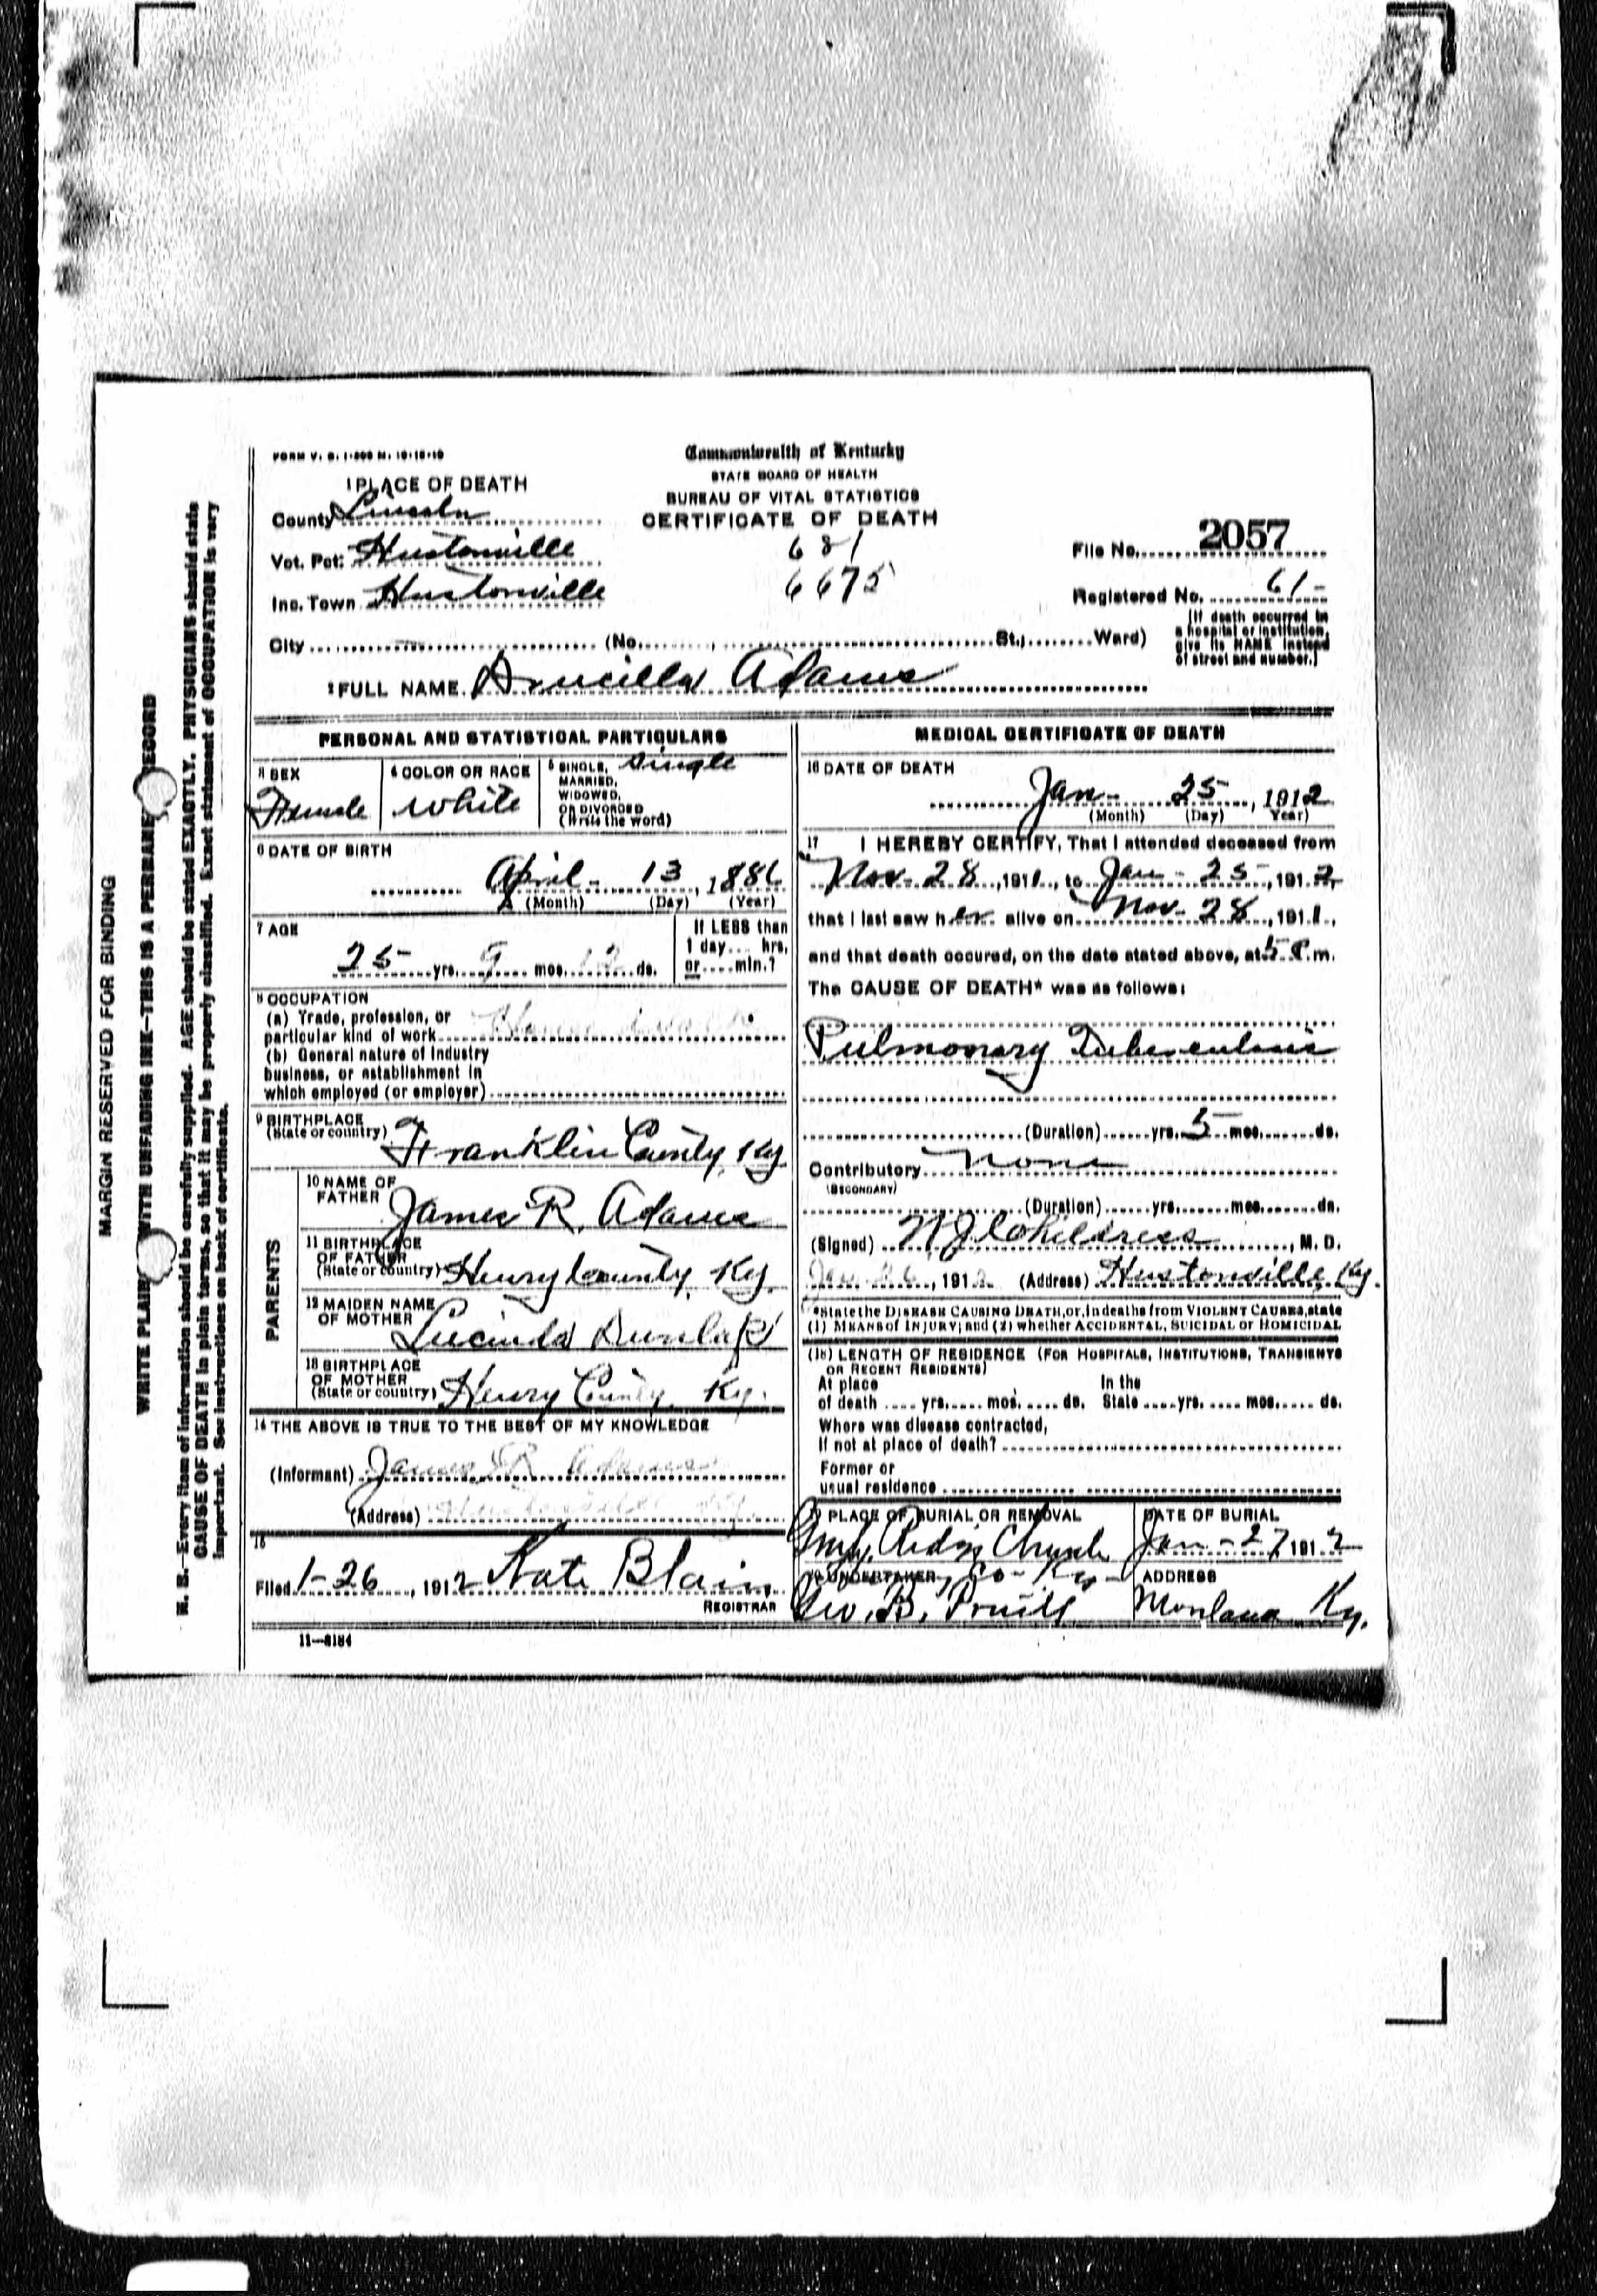 FORM V. S. 1-500 M. 10-18-10
Commonwealth of Kentucky
STATE BOARD OF HEALTH
BUREAU OF VITAL STATISTICS
CERTIFICATE OF DEATH
1 PLACE OF DEATH
County Lincoln
Vot. Pct: Hustonville
Inc. Town Hustonville
681
6675
File No. 2057
Registered No. 61-
City (No. St.; Ward)
[If death occurred in
a hospital or institution,
give its NAME instead
of street and number.]
2 FULL NAME Drucilla Adams
PERSONAL AND STATISTICAL PARTICULARS
3 SEX
Female
4 COLOR OR RACE
White
5 SINGLE, Single
MARRIED,
WIDOWED,
OR DIVORCED
(Write the word)
6 DATE OF BIRTH
April - 13, 1886
(Month) (Day) (Year)
7 AGE
25 yrs. 9 mos. 12 ds.
If LESS than
1 day... hrs.
or.... min.?
8 OCCUPATION
(a) Trade, profession, or
particular kind of work
(b) General nature of industry
business, or establishment in
which employed (or employer)
9 BIRTHPLACE
(State or country) Franklin County, Ky
PARENTS
10 NAME OF
FATHER James R. Adams
11 BIRTHPLACE
OF FATHER
(State or country) Henry County, Ky.
12 MAIDEN NAME
OF MOTHER Lucinda Dunlap
13 BIRTHPLACE
OF MOTHER
(State or country) Henry County, Ky.
14 THE ABOVE IS TRUE TO THE BEST OF MY KNOWLEDGE
(Informant) James R Adams
(Address) Hustonville Ky.
15
Filed 1-26, 1912 Kate Blain
REGISTRAR
11-8184
MEDICAL CERTIFICATE OF DEATH
16 DATE OF DEATH
Jan- 25, 1912
(Month) (Day) Year)
17 I HEREBY CERTIFY, That I attended deceased from
Nov- 28, 1911, to Jan - 25, 1912,
that I last saw her alive on Nov- 28, 1911,
and that death occured, on the date stated above, at 5 P.m.
The CAUSE OF DEATH* was as follows:
Pulmonary Tuberculosis
(Duration) yrs. 5 mos. ds.
Contributory none
(SECONDARY)
(Duration) yrs. mos. ds.
(Signed) Childress, M. D.
Jan 26, 1912 (Address) Hustonville, Ky.
*State the DISEASE CAUSING DEATH, or, in deaths from VIOLENT CAUSES, state
(1) MEANS of INJURY; and (2) whether ACCIDENTAL, SUICIDAL or HOMICIDAL
(18) LENGTH OF RESIDENCE (FOR HOSPITALS, INSTITUTIONS, TRANSIENTS
OR RECENT RESIDENTS)
At place In the
of death .... yrs. .... mos. .... ds. State .... yrs. .... mos. .... ds.
Where was disease contracted,
If not at place of death?
Former or
usual residence
PLACE OF BURIAL OR REMOVAL
Church
Co- Ky-
DATE OF BURIAL
Jan - 27 1912
UNDERTAKER
Geo. B. Pruitt
ADDRESS
Moreland Ky.
MARGIN RESERVED FOR BINDING
WRITE PLAINLY WITH UNFADING INK-THIS IS A PERMANENT RECORD
N. B.-Every item of information should be carefully supplied. AGE should be stated EXACTLY. PHYSICIANS should state
CAUSE OF DEATH in plain terms, so that it may be properly classified. Exact statement of OCCUPATION is very
important. See instructions on back of certificate.